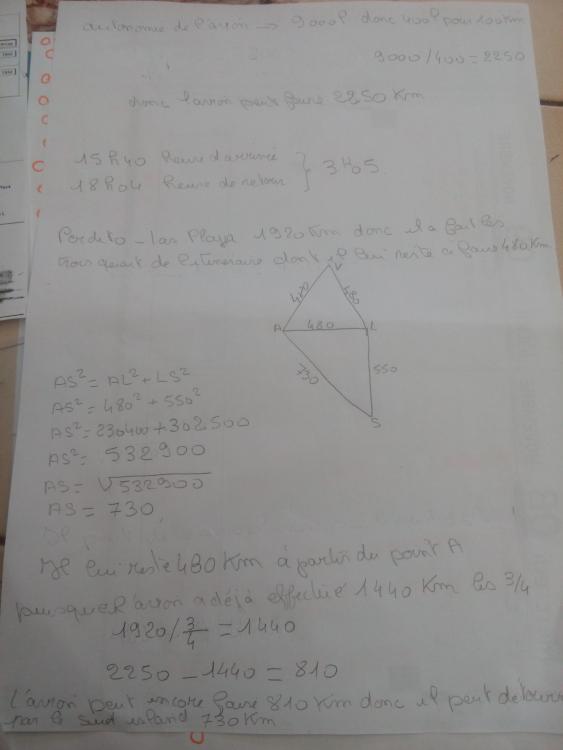 autonomie de l'avion → 9000l donc 400l pour 100Km
9000/400 = 2250
donc l'avion peut faire 2250 Km
15h40 heure d'arrivée
18h04 heure de retour } 3H05
Pordeto - las Playa 1920 Km donc il a fait les
trois quart de l'itineraire dont il lui reste a faire 480 Km
V
420 480
A 480 L
730 550
S
AS² = AL² + LS²
AS² = 480² + 550²
AS² = 230400 + 302500
AS² = 532900
AS = √532900
AS = 730
Il lui reste 480 Km à partir du point A
puisque l'avion a déjà effectué 1440 Km les 3/4
1920 / 3/4 = 1440
2250 - 1440 = 810
L'avion peut encore faire 810 Km donc il peut
par le Sud island 730 Km